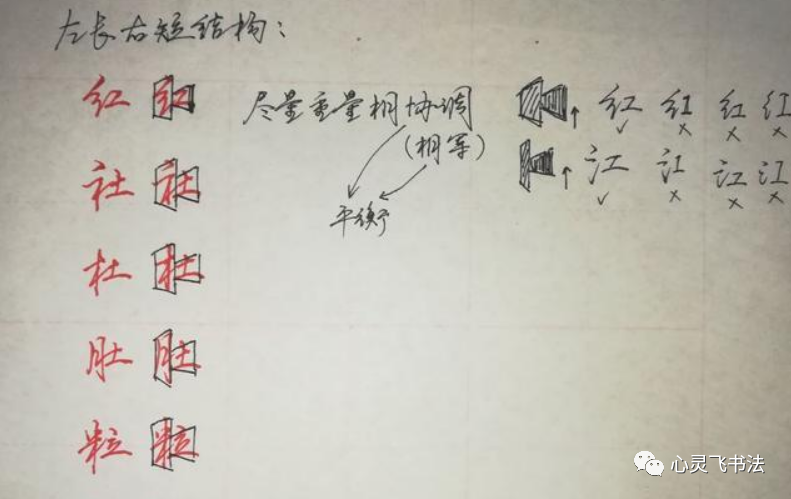 左长右短结构：
红 红 尽量重量相协调 红 红 红 红
✓ × × ×
社 社 （相等） 江 江 江 江
✓ × × ×
平衡
杜 杜
肚 肚
粒 粒
心灵飞书法